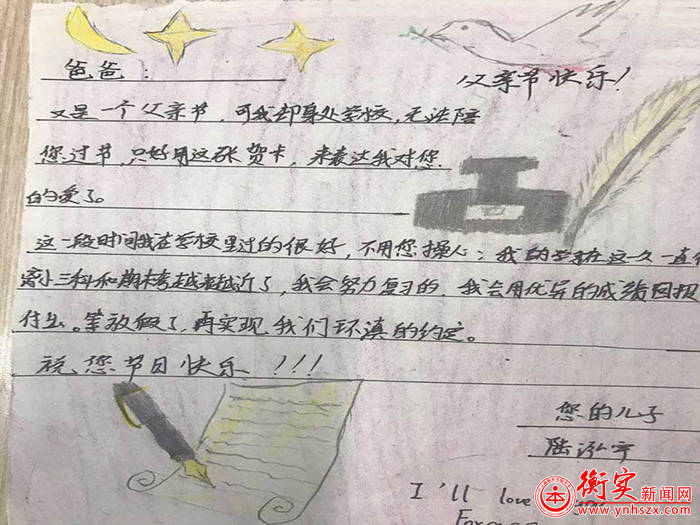 爸爸：
父亲节快乐！
又是一个父亲节，可我却身处学校，无法陪
您过节，只好用这张贺卡，来表达我对您
的爱了。
这一段时间我在学校里过的很好，不用您操心；我的学在这一久一直
离小三科和期末考越来越近了，我会努力复习的，我会用优异的成绩回报
付出。等放假了，再实现我们环滇的约定。
祝您节日快乐！！！
您的儿子
陆泓宇
I'll love you
Forever
衡实新闻网
www.ynhszx.com